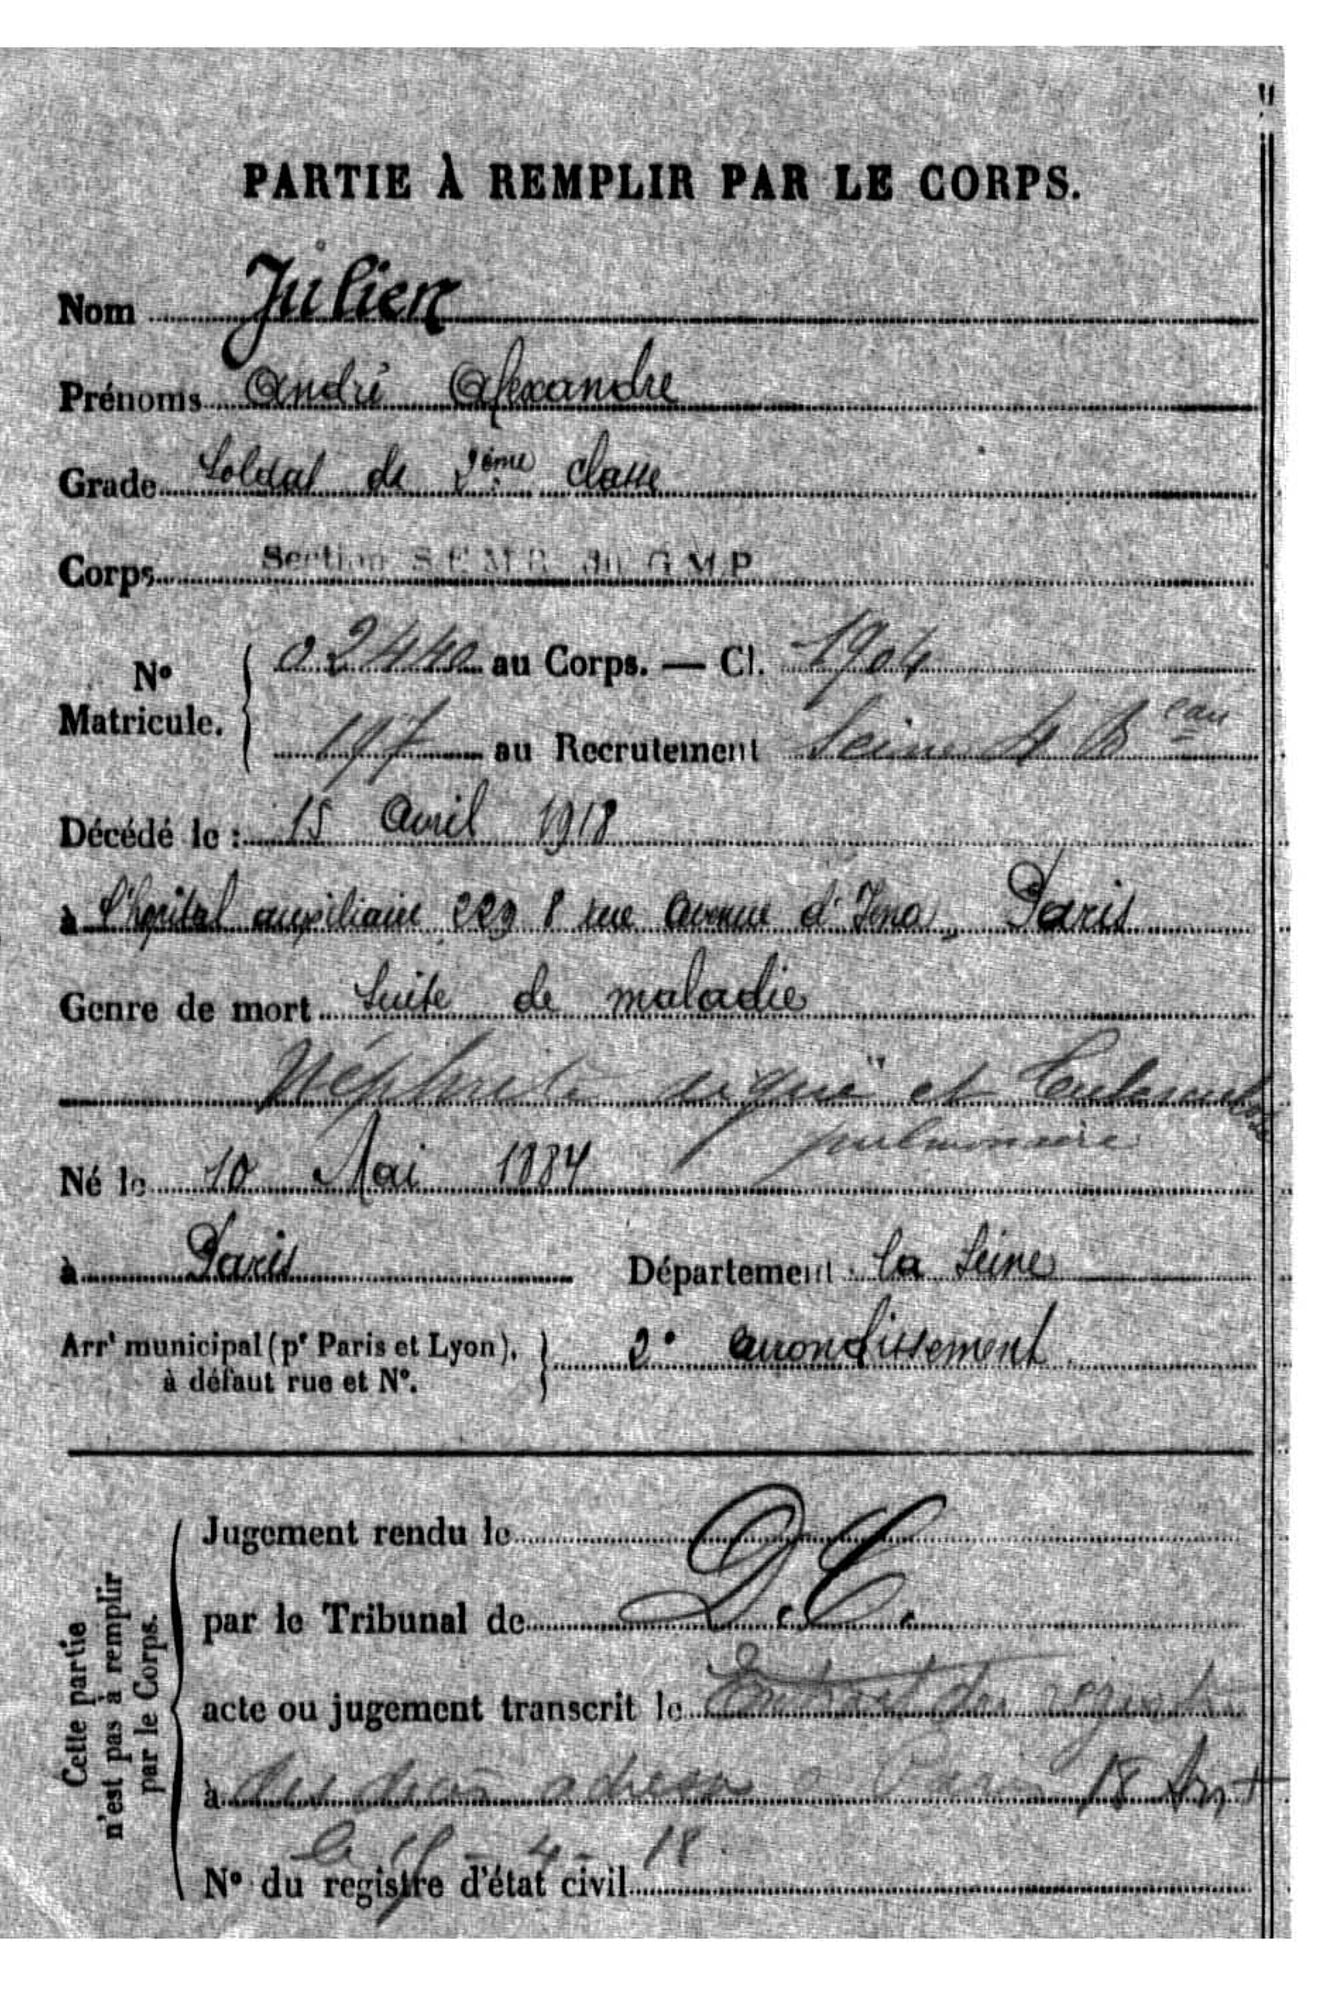 PARTIE À REMPLIR PAR LE CORPS.
Nom Julien
Prénoms André Alexandre
Grade Soldat de 2ème classe
Corps Section S.E.M.R. du G.M.P
No Matricule. { 02440 au Corps. — Cl. 1904
197 au Recrutement Seine 4 Beau
Décédé le : 15 Avril 1918
à l'hôpital auxiliaire 229 8 rue Avenue d'Iena, Paris
Genre de mort Suite de maladie
Néphrite aiguë et Tuberculose
pulmonaire
Né le 10 Mai 1884
à Paris Département la Seine
Arrt municipal (pr Paris et Lyon), à défaut rue et No. } 2e arrondissement
Cette partie n'est pas à remplir par le Corps.
Jugement rendu le
par le Tribunal de D.C.
acte ou jugement transcrit le Extrait des registres
à des décès adressé à Paris 18 Arrt
le 15 - 4 - 18
No du registre d'état civil